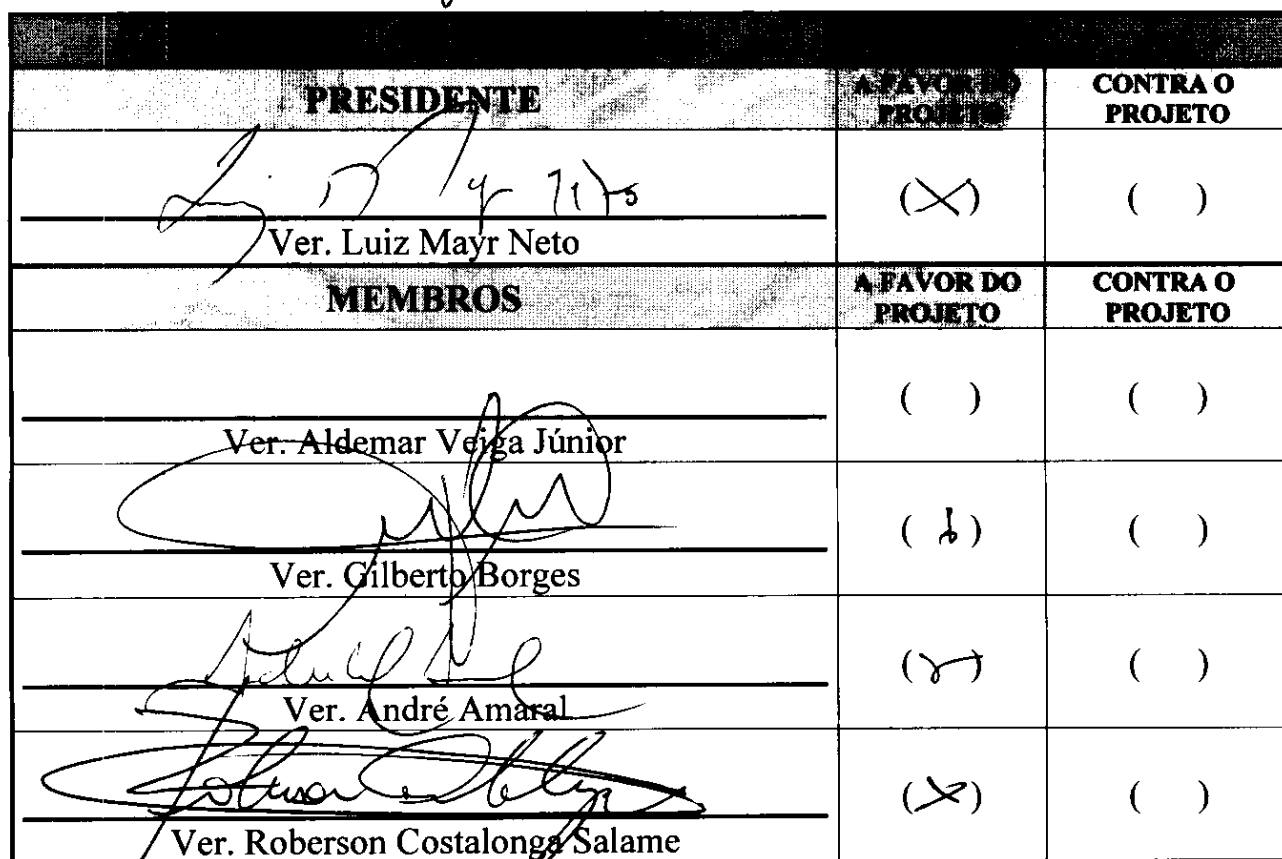 PRESIDENTE A FAVOR DO PROJETO CONTRA O PROJETO
(X) ( )
Ver. Luiz Mayr Neto
MEMBROS A FAVOR DO PROJETO CONTRA O PROJETO
( ) ( )
Ver. Aldemar Veiga Júnior
( ) ( )
Ver. Gilberto Borges
( ) ( )
Ver. André Amaral
(X) ( )
Ver. Roberson Costalonga Salame